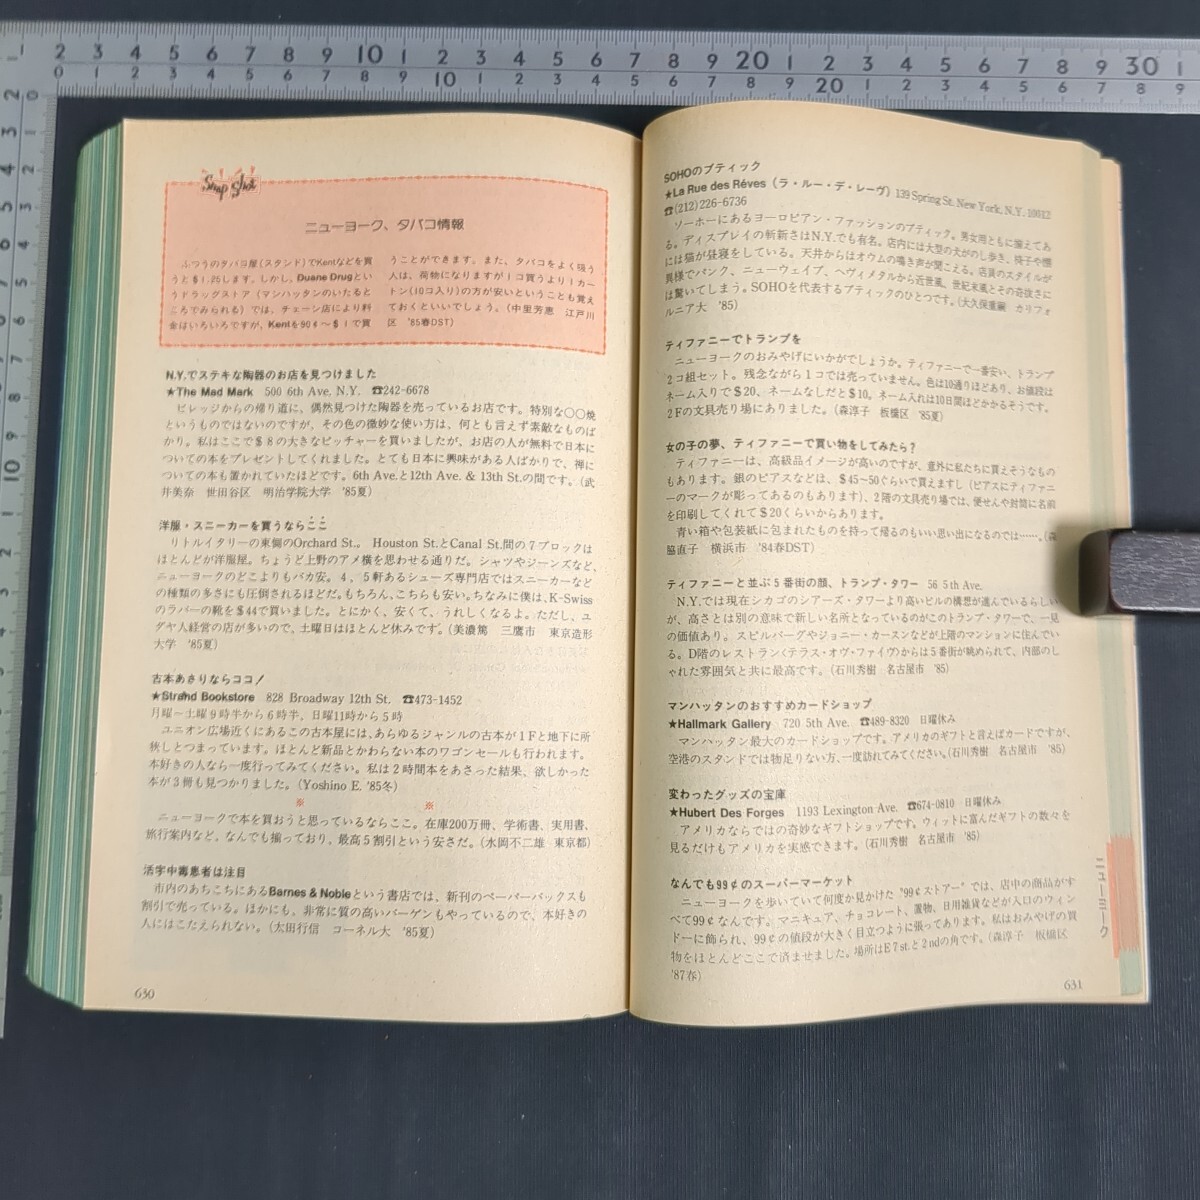 Snap Shot
ニューヨーク、タバコ情報
ふつうのタバコ屋(スタンド)でKentなどを買
うと$1.25します。しかし、Duane Drugとい
うドラッグストア(マンハッタンのいたると
ころでみられる)では、チェーン店により料
金はいろいろですが、Kentを90¢〜$1で買
うことができます。また、タバコをよく吸う
人は、荷物になりますが1コ買うより1カー
トン(10コ入り)の方が安いということも覚え
ておくといいでしょう。(中里芳恵 江戸川
区 '85春DST)
N.Y.でステキな陶器のお店を見つけました
★The Mad Mark 500 6th Ave. N.Y. ☎242-6678
ビレッジからの帰り道に、偶然見つけた陶器を売っているお店です。特別な〇〇焼
というものではないのですが、その色の微妙な使い方は、何とも言えず素敵なものば
かり。私はここで$8の大きなピッチャーを買いましたが、お店の人が無料で日本に
ついての本をプレゼントしてくれました。とても日本に興味がある人ばかりで、禅に
ついての本も置かれていたほどです。6th Ave.と12th Ave. & 13th St.の間です。(武
井美奈 世田谷区 明治学院大学 '85夏)
洋服・スニーカーを買うならここ
リトルイタリーの東側のOrchard St.。 Houston St.とCanal St.間の7ブロックは
ほとんどが洋服屋。ちょうど上野のアメ横を思わせる通りだ。シャツやジーンズなど、
ニューヨークのどこよりもバカ安。4、5軒あるシューズ専門店ではスニーカーなど
の種類の多さにも圧倒されるほどだ。もちろん、こちらも安い。ちなみに僕は、K-Swiss
のラバーの靴を$44で買いました。とにかく、安くて、うれしくなるよ。ただし、ユ
ダヤ人経営の店が多いので、土曜日はほとんど休みです。(美濃篤 三鷹市 東京造形
大学 '85夏)
古本あさりならココ!
★Strand Bookstore 828 Broadway 12th St. ☎473-1452
月曜〜土曜9時半から6時半、日曜11時から5時
ユニオン広場近くにあるこの古本屋には、あらゆるジャンルの古本が1Fと地下に所
狭しとつまっています。ほとんど新品とかわらない本のワゴンセールも行われます。
本好きの人なら一度行ってみてください。私は2時間本をあさった結果、欲しかった
本が3冊も見つかりました。(Yoshino E. '85冬)
※ ※
ニューヨークで本を買おうと思っているならここ。在庫200万冊、学術書、実用書、
旅行案内など、なんでも揃っており、最高5割引という安さだ。(水岡不二雄 東京都)
活字中毒患者は注目
市内のあちこちにあるBarnes & Nobleという書店では、新刊のペーパーバックスも
割引で売っている。ほかにも、非常に質の高いバーゲンもやっているので、本好きの
人にはこたえられない。(太田行信 コーネル大 '85夏)
630
SOHOのブティック
★La Rue des Rêves (ラ・ルー・デ・レーヴ) 139 Spring St. New York, N.Y. 10012
☎(212)226-6736
ソーホーにあるヨーロピアン・ファッションのブティック。男女用ともに揃えてあ
る。ディスプレイの斬新さはN.Y.でも有名。店内には大型の犬がのし歩き、椅子や棚
には猫が昼寝をしている。天井からはオウムの鳴き声が聞こえる。店員のスタイルが
異様でパンク、ニューウェイブ、ヘヴィメタルから近世風、世紀末風とその奇抜さに
は驚いてしまう。SOHOを代表するブティックのひとつです。(大久保重嗣 カリフォ
ルニア大 '85)
ティファニーでトランプを
ニューヨークのおみやげにいかがでしょうか。ティファニーで一番安い、トランプ
2コ組セット。残念ながら1コでは売っていません。色は10通りほどあり、お値段は
ネーム入りで$20、ネームなしだと$10。ネーム入れは10日間ほどかかるそうです。
2Fの文具売り場にありました。(森淳子 板橋区 '85夏)
女の子の夢、ティファニーで買い物をしてみたら?
ティファニーは、高級品イメージが高いのですが、意外に私たちに買えそうなもの
もあります。銀のピアスなどは、$45〜50ぐらいで買えますし(ピアスにティファニ
ーのマークが彫ってあるのもあります)、2階の文具売り場では、便せんや封筒に名前
を印刷してくれて$20くらいからあります。
青い箱や包装紙に包まれたものを持って帰るのもいい思い出になるのでは……。(森
脇直子 横浜市 '84春DST)
ティファニーと並ぶ5番街の顔、トランプ・タワー 56 5th Ave.
N.Y.では現在シカゴのシアーズ・タワーより高いビルの構想が進んでいるらしい
が、高さとは別の意味で新しい名所となっているのがこのトランプ・タワーで、一見
の価値あり。スピルバーグやジョニー・カースンなどが上階のマンションに住んでい
る。D階のレストラン〈テラス・オヴ・ファイヴ〉からは5番街が眺められて、内部のし
ゃれた雰囲気と共に最高です。(石川秀樹 名古屋市 '85)
マンハッタンのおすすめカードショップ
★Hallmark Gallery 720 5th Ave. ☎489-8320 日曜休み
マンハッタン最大のカードショップです。アメリカのギフトと言えばカードですが、
空港のスタンドでは物足りない方、一度訪れてみてください。(石川秀樹 名古屋市 '85)
変わったグッズの宝庫
★Hubert Des Forges 1193 Lexington Ave. ☎674-0810 日曜休み
アメリカならではの奇妙なギフトショップです。ウィットに富んだギフトの数々を
見るだけもアメリカを実感できます。(石川秀樹 名古屋市 '85)
なんでも99¢のスーパーマーケット
ニューヨークを歩いていて何度か見かけた“99¢ストアー”では、店中の商品がす
べて99¢なんです。マニキュア、チョコレート、置物、日用雑貨などが入口のウィン
ドーに飾られ、99¢の値段が大きく目立つように張ってあります。私はおみやげの買
物をほとんどここで済ませました。場所はE7st.と2ndの角です。(森淳子 板橋区
'87春)
631
ニューヨーク